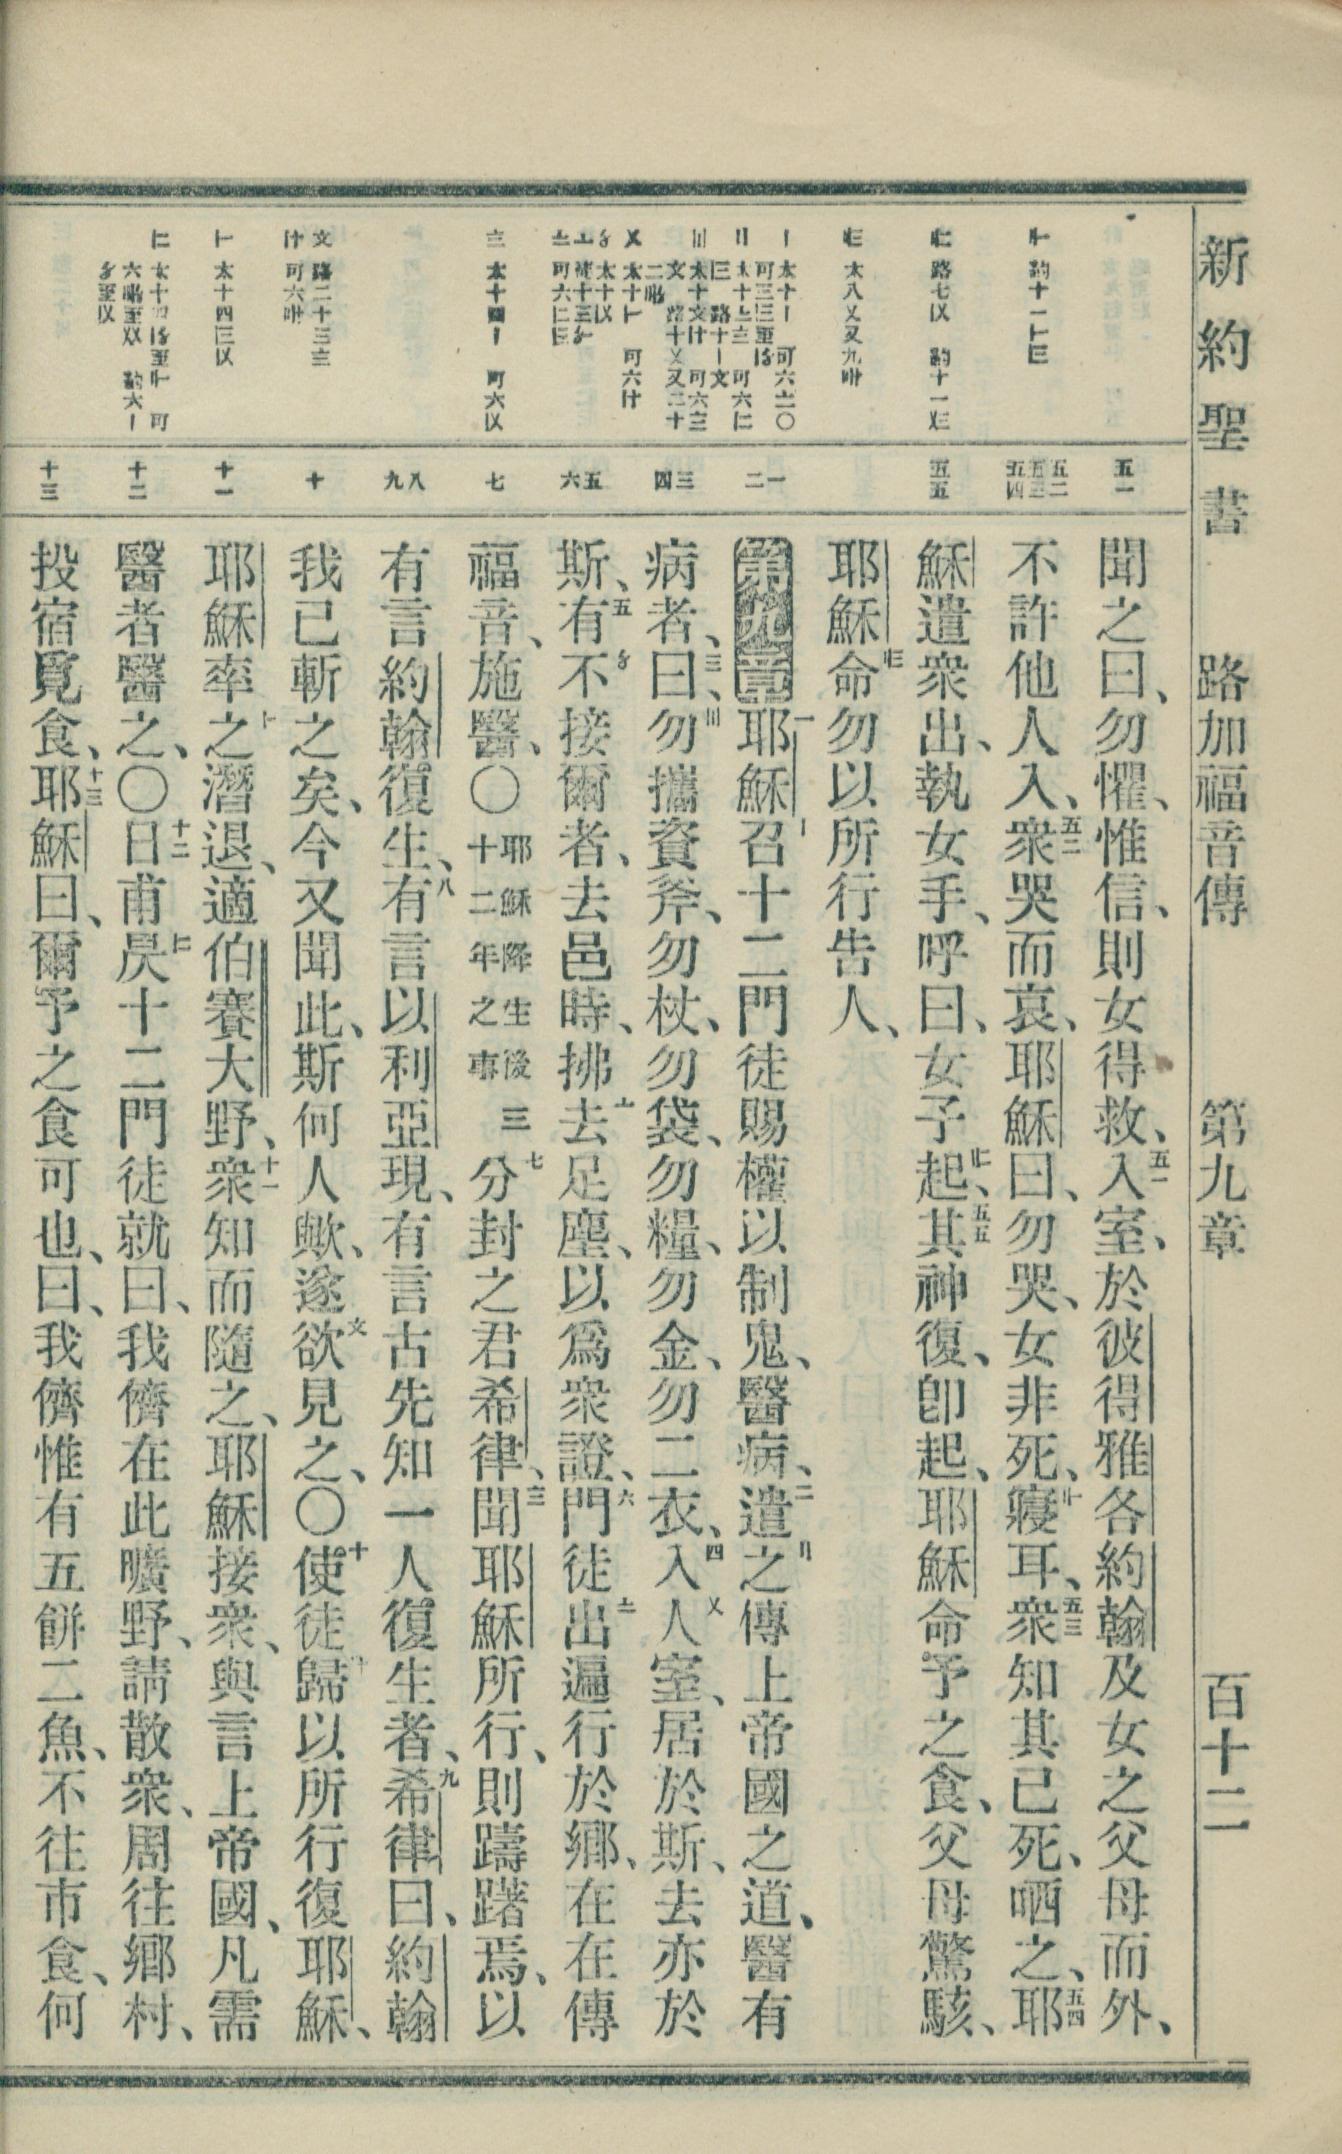 新約聖書 路加福音傳 第九章 百十二
五一
五二 五三 五四
五五
一 二
三 四
五 六
七
八 九
十
十一
十二
十三
聞之曰、勿懼、惟信、則女得救、五一入室、於彼得雅各約翰及女之父母而外、
不許他人入、五二衆哭而哀、耶穌曰、勿哭、女非死、寢耳、五三衆知其已死、哂之、五四耶
穌遣衆出、執女手、呼曰、女子起、五五其神復、卽起、耶穌命予之食、父母驚駭、
耶穌命勿以所行告人、
第九章 一耶穌召十二門徒賜權以制鬼、醫病、二遣之傳上帝國之道、醫有
病者、三曰、勿攜資斧、勿杖、勿袋、勿糧、勿金、勿二衣、四入人室、居於斯、去亦於
斯、五有不接爾者、去邑時、拂去足塵、以爲衆證、六門徒出遍行於鄉、在在傳
福音、施醫、〇耶穌降生後三十二年之事七分封之君希律、聞耶穌所行、則躊躇焉、以
有言約翰復生、八有言以利亞現、有言古先知一人復生者、九希律曰、約翰
我已斬之矣、今又聞此、斯何人歟、遂欲見之、〇十使徒歸以所行復耶穌、
耶穌率之潛退、適伯賽大野、十一衆知而隨之、耶穌接衆、與言上帝國、凡需
醫者醫之、〇十二日甫昃十二門徒就曰、我儕在此曠野、請散衆、周往鄉村、
投宿覓食、十三耶穌曰、爾予之食可也、曰、我儕惟有五餅二魚、不往市食、何